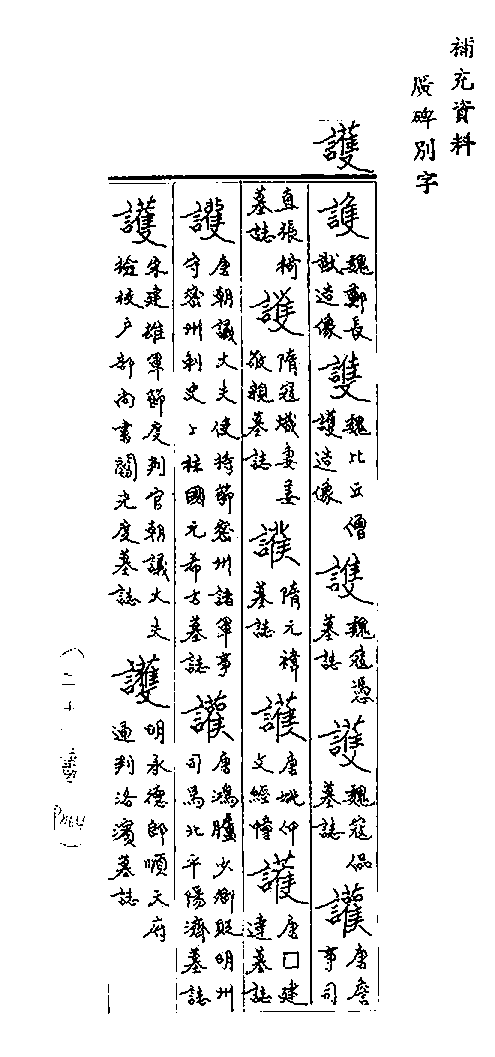 補充資料
廣碑別字
護
護 魏鄭長猷造像 護 魏比丘僧護造像 護 魏寇憑墓誌 護 魏寇偘墓誌 護 唐詹事司
直張椅墓誌 護 隋寇熾妻姜敬親墓誌 護 隋元禕墓誌 護 唐姚仲文經幢 護 唐□建達墓誌
護 唐朝議大夫使持節密州諸軍事守密州刺史上柱國元希古墓誌 護 唐鴻臚少卿貶明州司馬北平陽濟墓誌
護 宋建雄軍節度判官朝議大夫檢校戶部尚書閻光度墓誌 護 明承德郎順天府通判洛濱墓誌